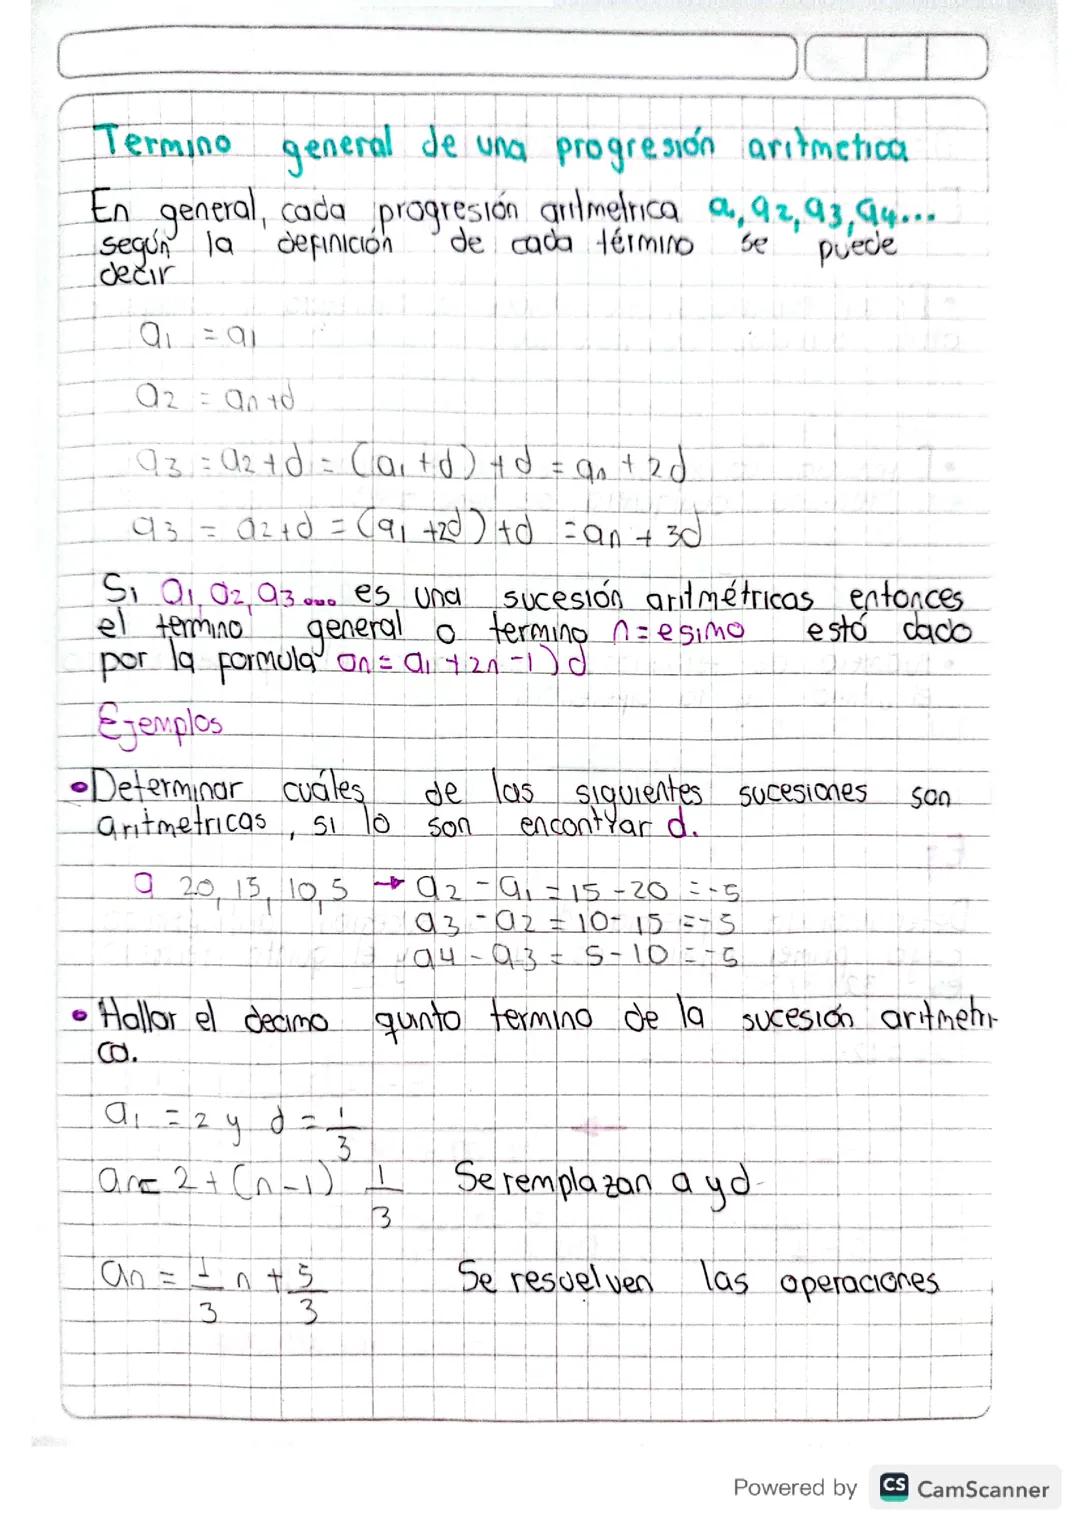 Termino general de una progresión aritmetica
En general, cada progresión aritmetrica a, a2, a3, a4...
según la definición de cada término se puede
decir
a1 = a1
a2 = an + d
a3 = a2 + d = (a1 + d) + d = an + 2d
a3 = a2 + d = (a1 + 2d) + d = an + 3d
Si a1, a2, a3 .... es una sucesión aritmétricas entonces
el termino general o termino n=esimo está dado
por la formula an = a1 + 2n - 1) d
Ejemplos
• Determinar cuáles de las siguientes sucesiones son
aritmetricas, si lo son encontrar d.
a 20, 15, 10, 5 → a2 - a1 = 15 - 20 = -5
a3 - a2 = 10 - 15 = -5
a4 - a3 = 5 - 10 = -5
• Hallar el decimo quinto termino de la sucesión aritmetri-
ca.
a1 = 2 y d = 1/3
an = 2 + (n - 1) 1/3 Se remplazan a y d
an = 1/3 n + 5/3 Se resuelven las operaciones
Powered by CS CamScanner